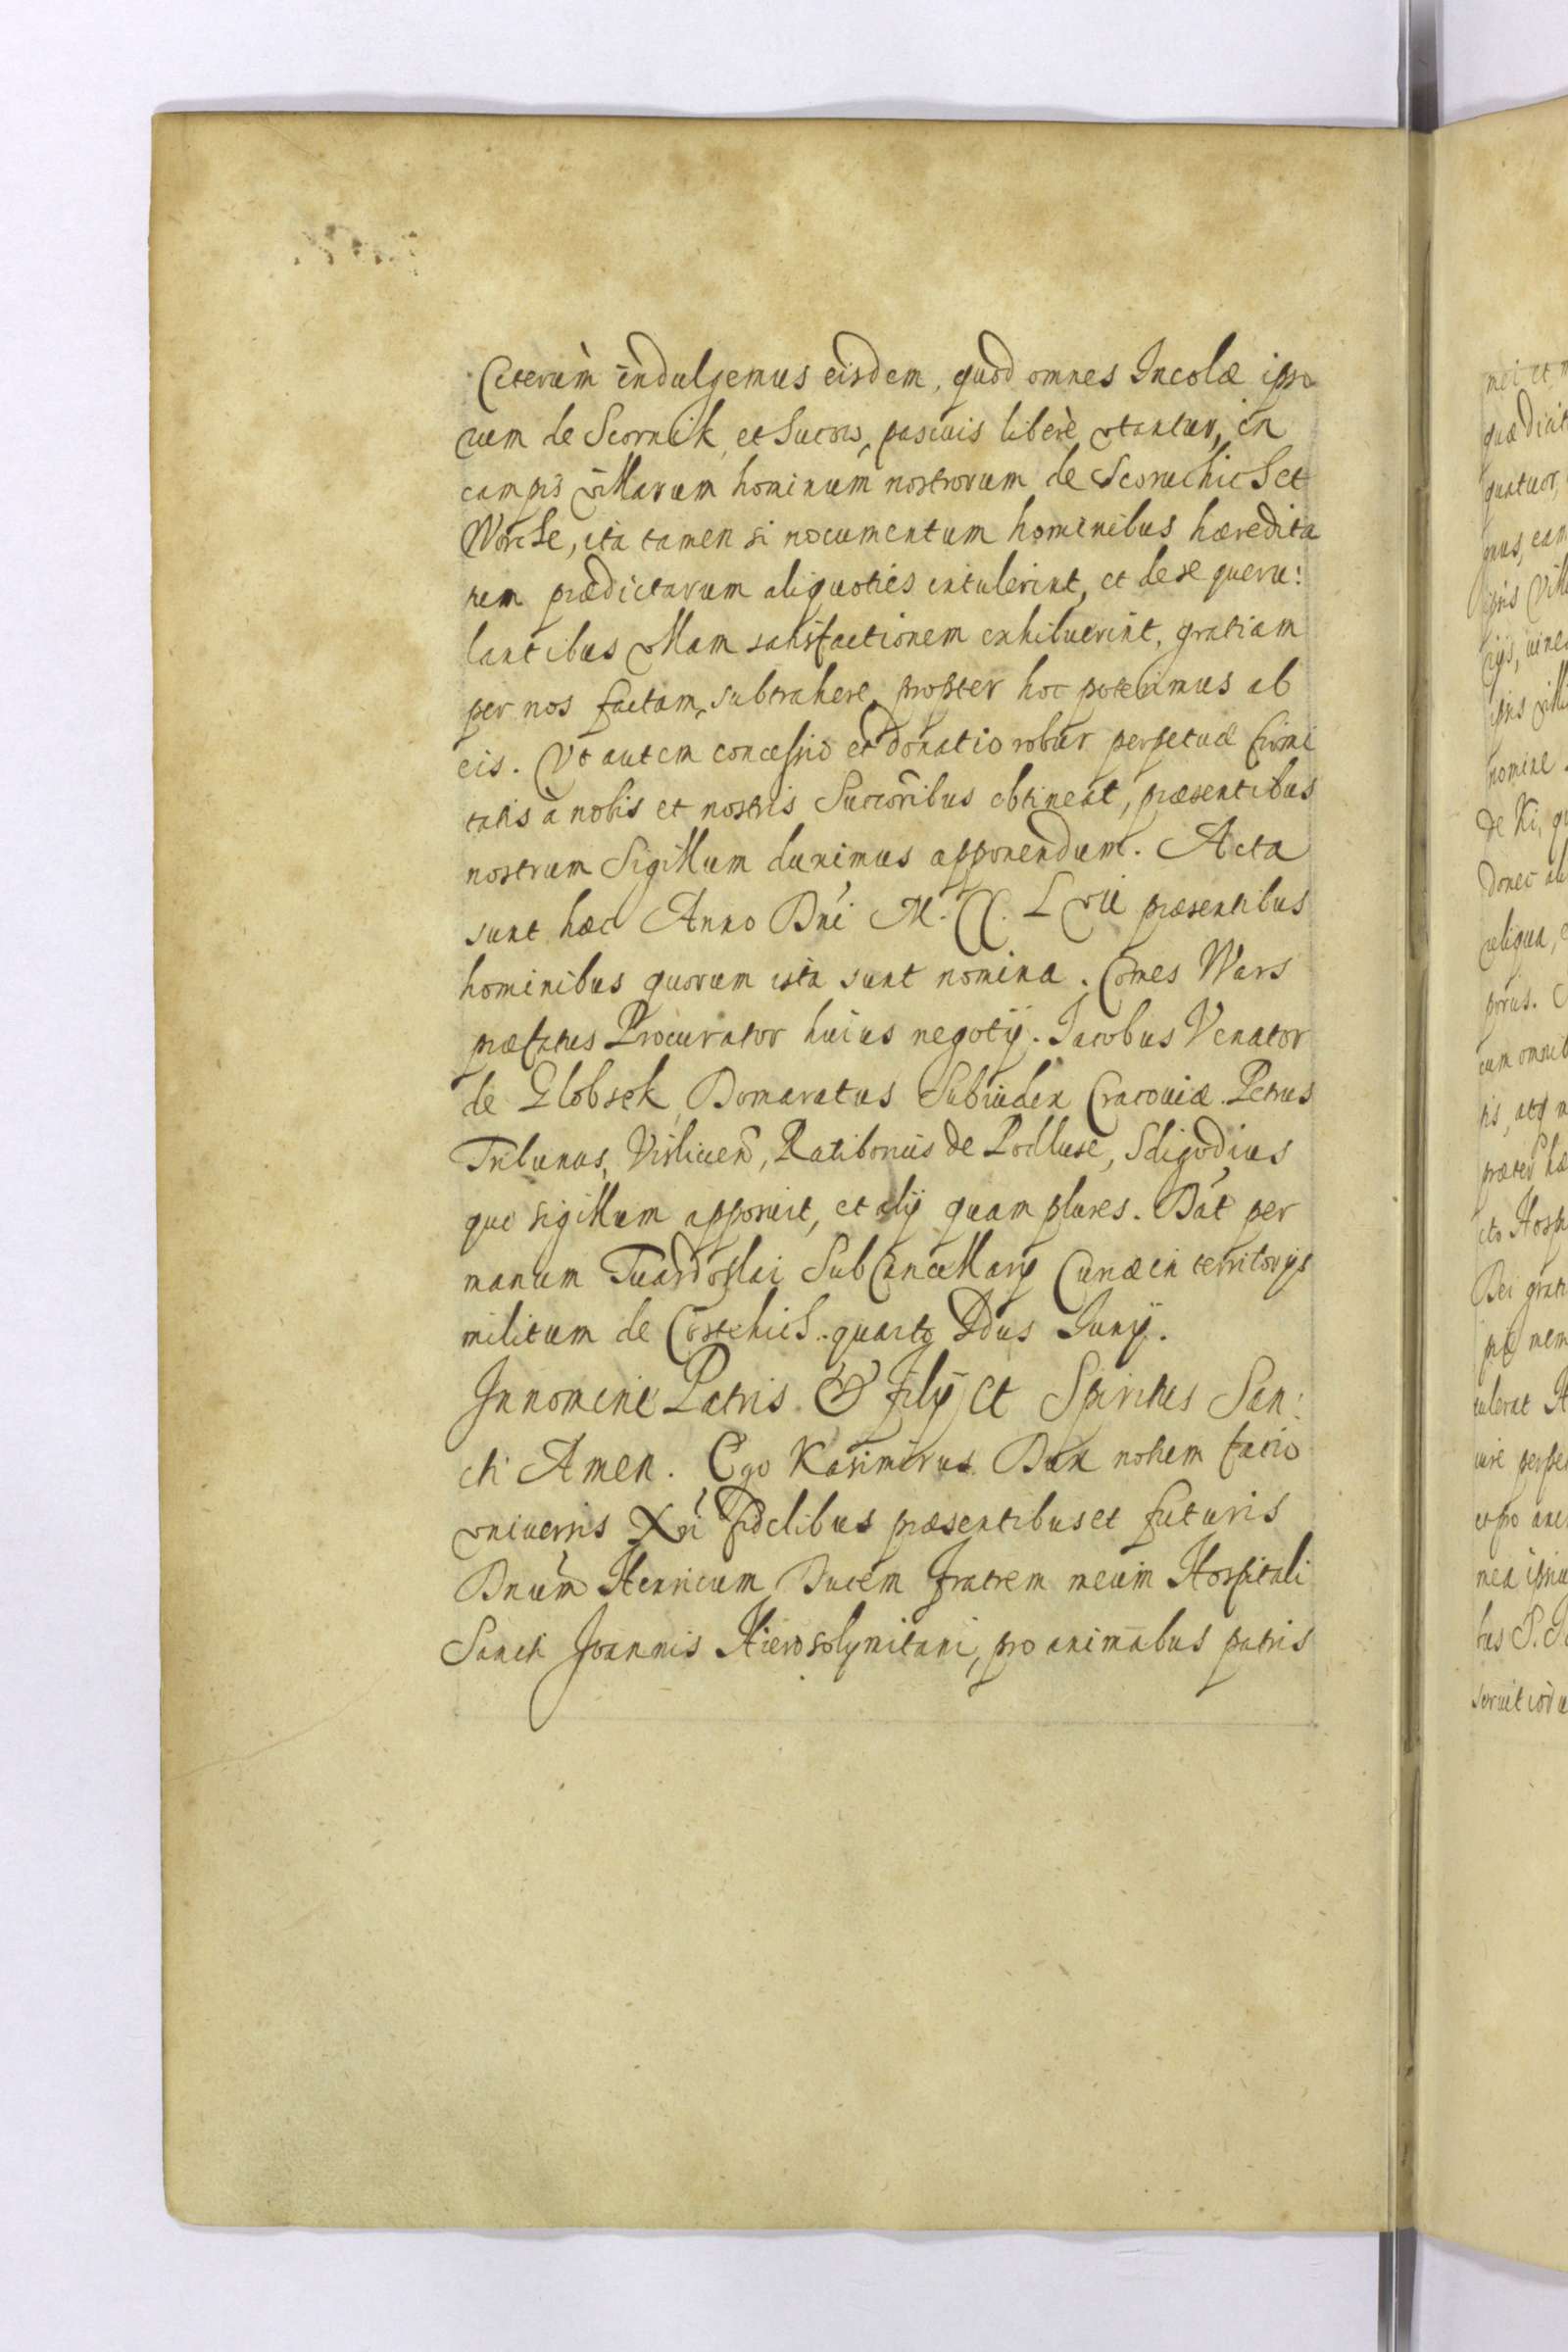 Ceterùm indulgemus eisdem, quod omnes Incolæ ipso
rum de Scornik, et Sucors, pascuis liberè vtantur, in
campis villarum hominum nostrorum de Scoruchichet
Worche, ita tamen si nocumentum hominibus hæredita
tem prædictarum aliquoties intulerint, et de se queru:
lantibus vllam satisfactionem exhibuerint, gratiam
per nos factam subtrahere propter hoc poterimus ab
eis. Vt autem concessio et donatio robur perpetuæ firmi
tatis à nobis et nostris Succoribus obtineat, præsentibus
nostrum Sigillum duximus apponendum. Acta
sunt hæc Anno Dni M. CC. L vii præsentibus
hominibus quorum ista sunt nomina. Comes Wars
præfatus Procurator huius negotij. Iacobus Venator
de Globsek, Domaratus Subiudex Cracouiæ Petrus
Tribunus, Vislicien, Ratiborius de Podluse, Sdigodius
qui sigillum apposuit, et alij quam plures. Dat per
manum Tuardoslai SubCancellarij Curiæ in territorijs
militum de Costchich. quarto Idus Iunij.
In nomine Patris & Filij et Spiritus San:
cti Amen. Ego Kasimirus Dux notum facio
vniuersis Xri fidelibus præsentibus et futuris
Dnum Henricum Ducem fratrem meum Hospitali
Sancti Joannis Hierosolymitani, pro animabus patris